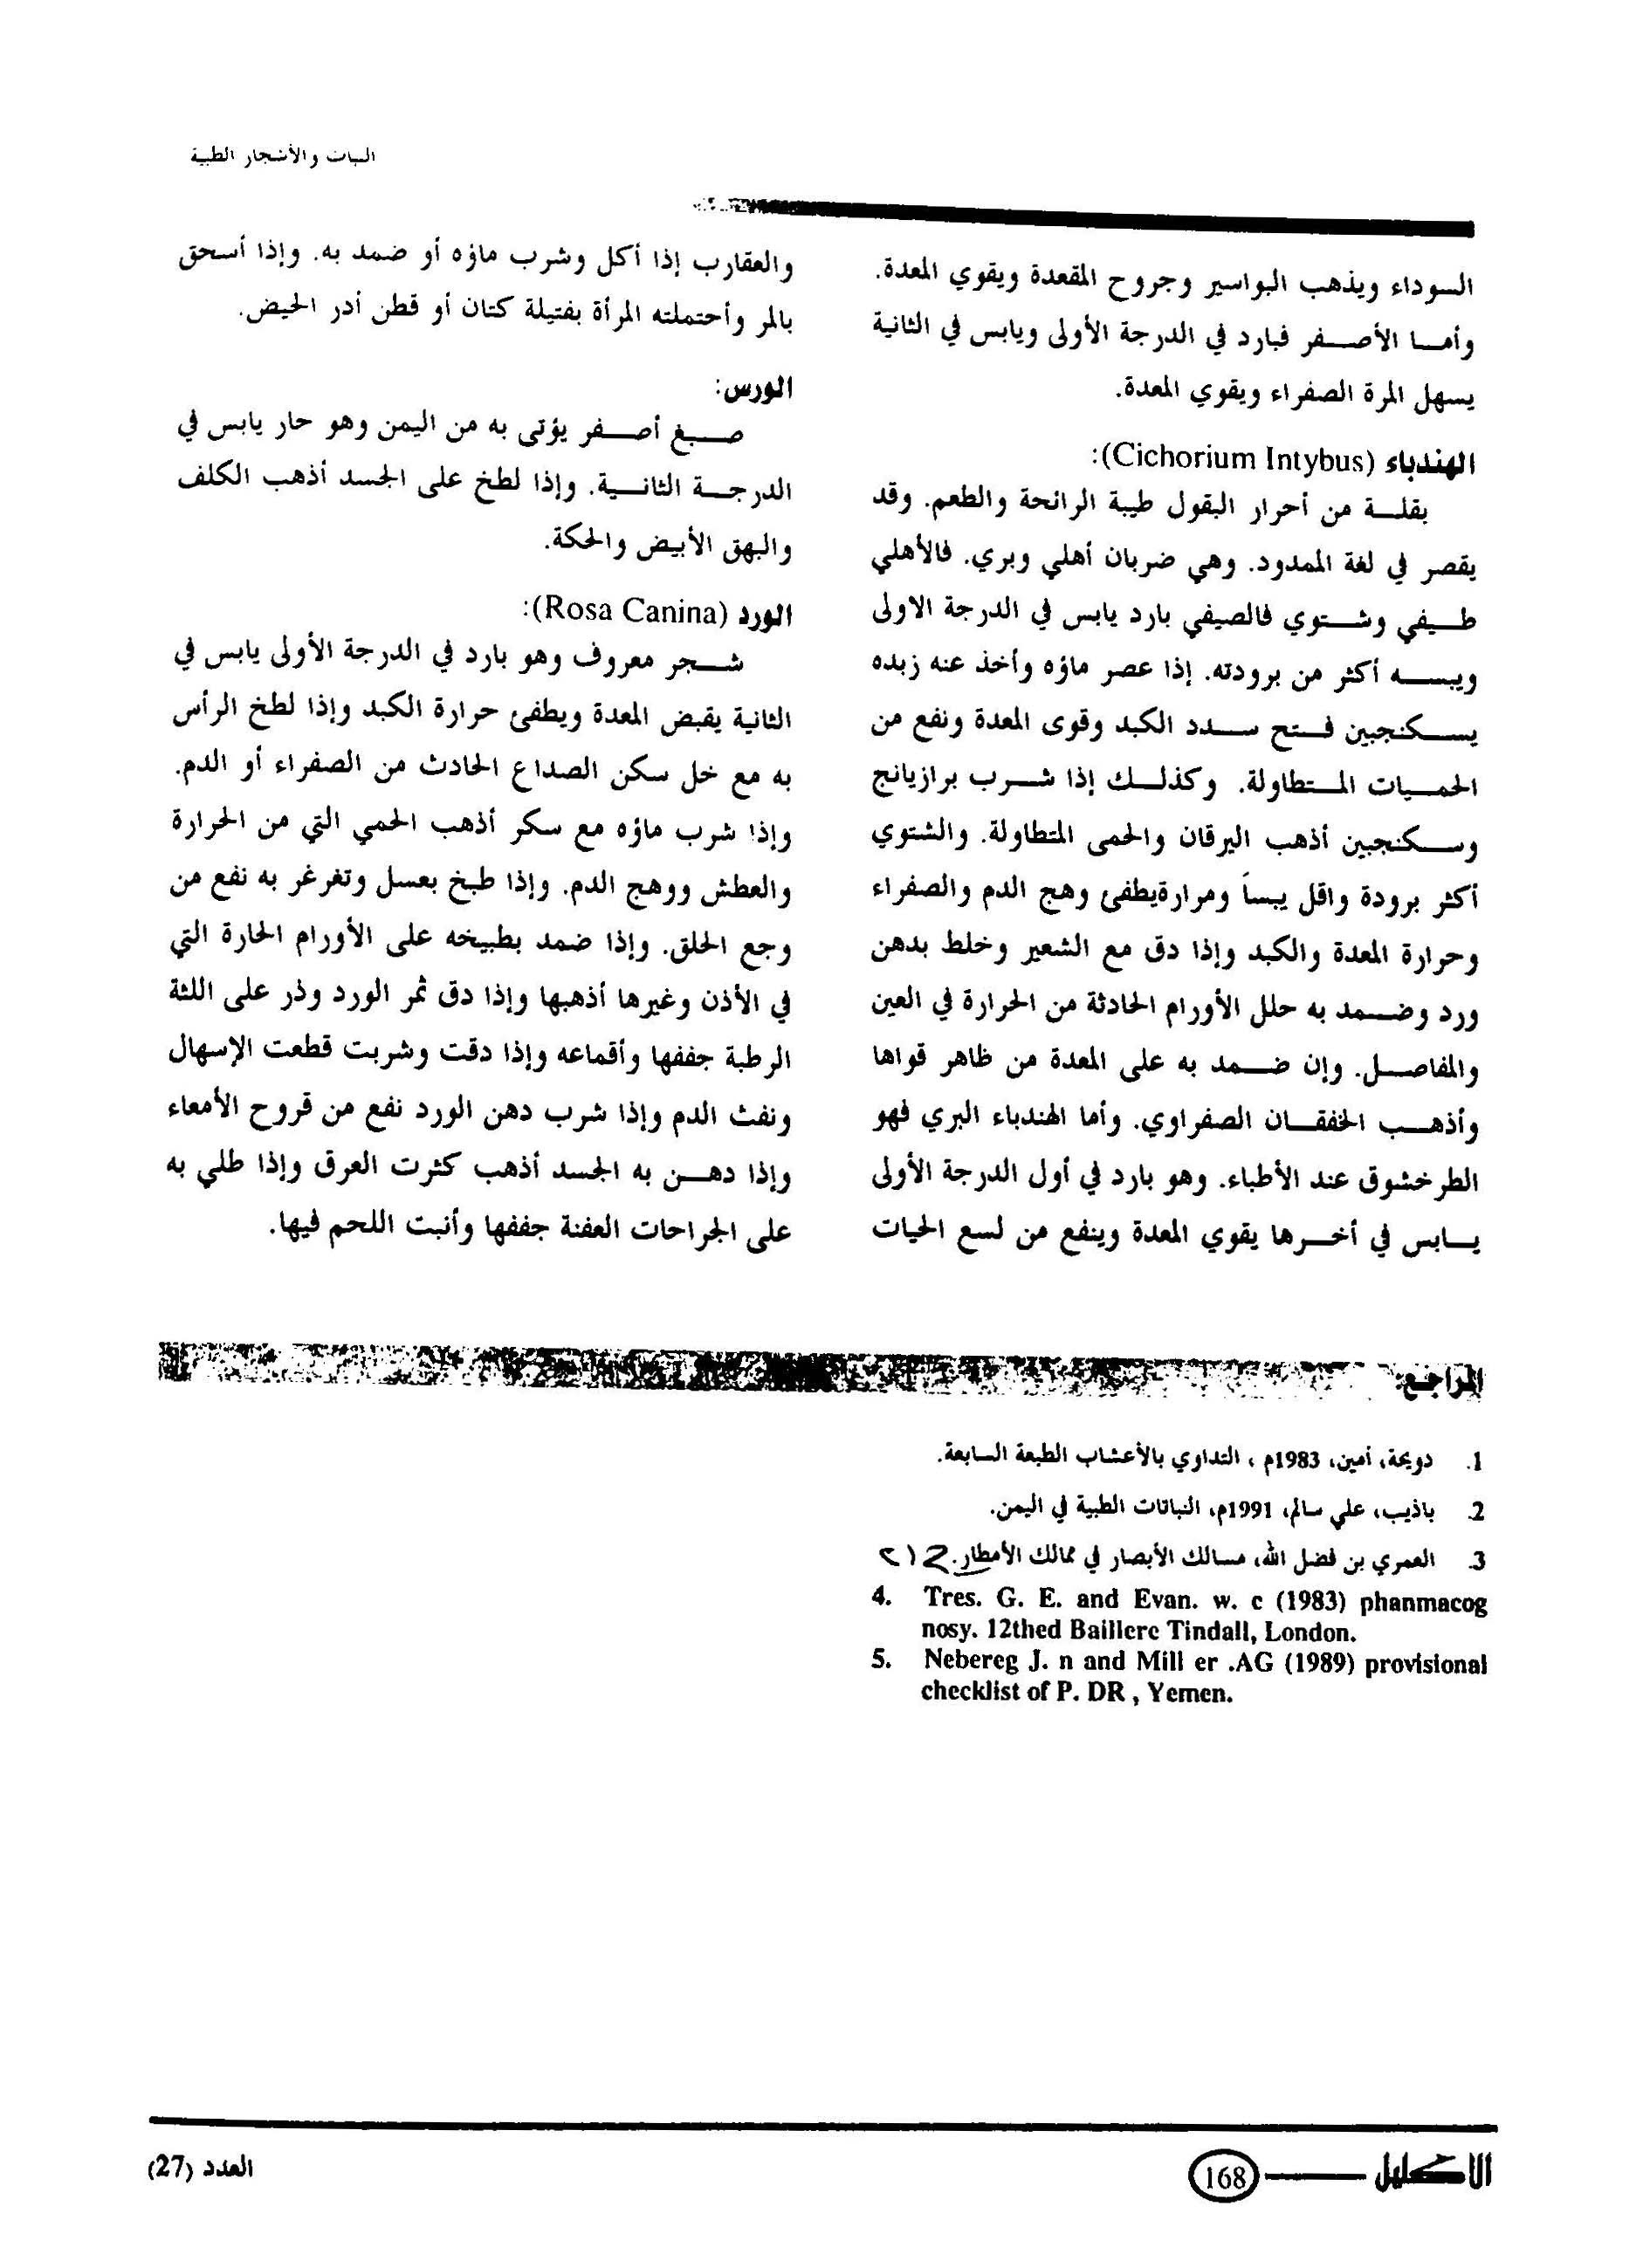 النبات والأشجار الطبية
السوداء ويذهب البواسير وجروح المقعدة ويقوي المعدة.
وأما الأصفر فبارد في الدرجة الأولى ويابس في الثانية
يسهل المرة الصفراء ويقوي المعدة.
الهندباء (Cichorium Intybus):
بقلة من أحرار البقول طيبة الرائحة والطعم. وقد
يقصر في لغة الممدود. وهي ضربان أهلي وبري. فالأهلي
طيفي وشتوي فالصيفي بارد يابس في الدرجة الاولى
ويبسه أكثر من برودته. إذا عصر ماؤه وأخذ عنه زبده
يسكنجبين فتح سدد الكبد وقوى المعدة ونفع من
الحميات المتطاولة. وكذلك إذا شرب برازيانج
وسكنجبين أذهب اليرقان والحمى المتطاولة. والشتوي
أكثر برودة واقل يبساً ومرارةيطفئ وهج الدم والصفراء
وحرارة المعدة والكبد وإذا دق مع الشعير وخلط بدهن
ورد وضمد به حلل الأورام الحادثة من الحرارة في العين
والمفاصل. وإن ضمد به على المعدة من ظاهر قواها
وأذهب الخفقان الصفراوي. وأما الهندباء البري فهو
الطرخشوق عند الأطباء. وهو بارد في أول الدرجة الأولى
يابس في أخرها يقوي المعدة وينفع من لسع الحيات
والعقارب إذا أكل وشرب ماؤه أو ضمد به. وإذا أسحق
بالمر وأحتملته المرأة بفتيلة كتان أو قطن أدر الحيض.
الورس:
صبغ أصفر يؤتى به من اليمن وهو حار يابس في
الدرجة الثانية. وإذا لطخ على الجسد أذهب الكلف
والبهق الأبيض والحكة.
الورد (Rosa Canina):
شجر معروف وهو بارد في الدرجة الأولى يابس في
الثانية يقبض المعدة ويطفئ حرارة الكبد وإذا لطخ الرأس
به مع خل سكن الصداع الحادث من الصفراء أو الدم.
وإذا شرب ماؤه مع سكر أذهب الحمي التي من الحرارة
والعطش ووهج الدم. وإذا طبخ بعسل وتغرغر به نفع من
وجع الحلق. وإذا ضمد بطبيخه على الأورام الحارة التي
في الأذن وغيرها أذهبها وإذا دق ثمر الورد وذر على اللثة
الرطبة جففها وأقماعه وإذا دقت وشربت قطعت الإسهال
ونفث الدم وإذا شرب دهن الورد نفع من قروح الأمعاء
وإذا دهن به الجسد أذهب كثرت العرق وإذا طلي به
على الجراحات العفنة جففها وأنبت اللحم فيها.
المراجع:
1. دويحة، أمين، 1983م، التداوي بالأعشاب الطبعة السابعة.
2. باذيب، علي سالم، 1991م، النباتات الطبية في اليمن.
3. العمري بن فضل الله، مسالك الأبصار في ممالك الأمطار.
4. Tres. G. E. and Evan. w. c (1983) phanmacog
nosy. 12thed Baillere Tindall, London.
5. Nebereg J. n and Mill er .AG (1989) provisional
checklist of P. DR , Yemen.
الاكليل 168
العدد (27)